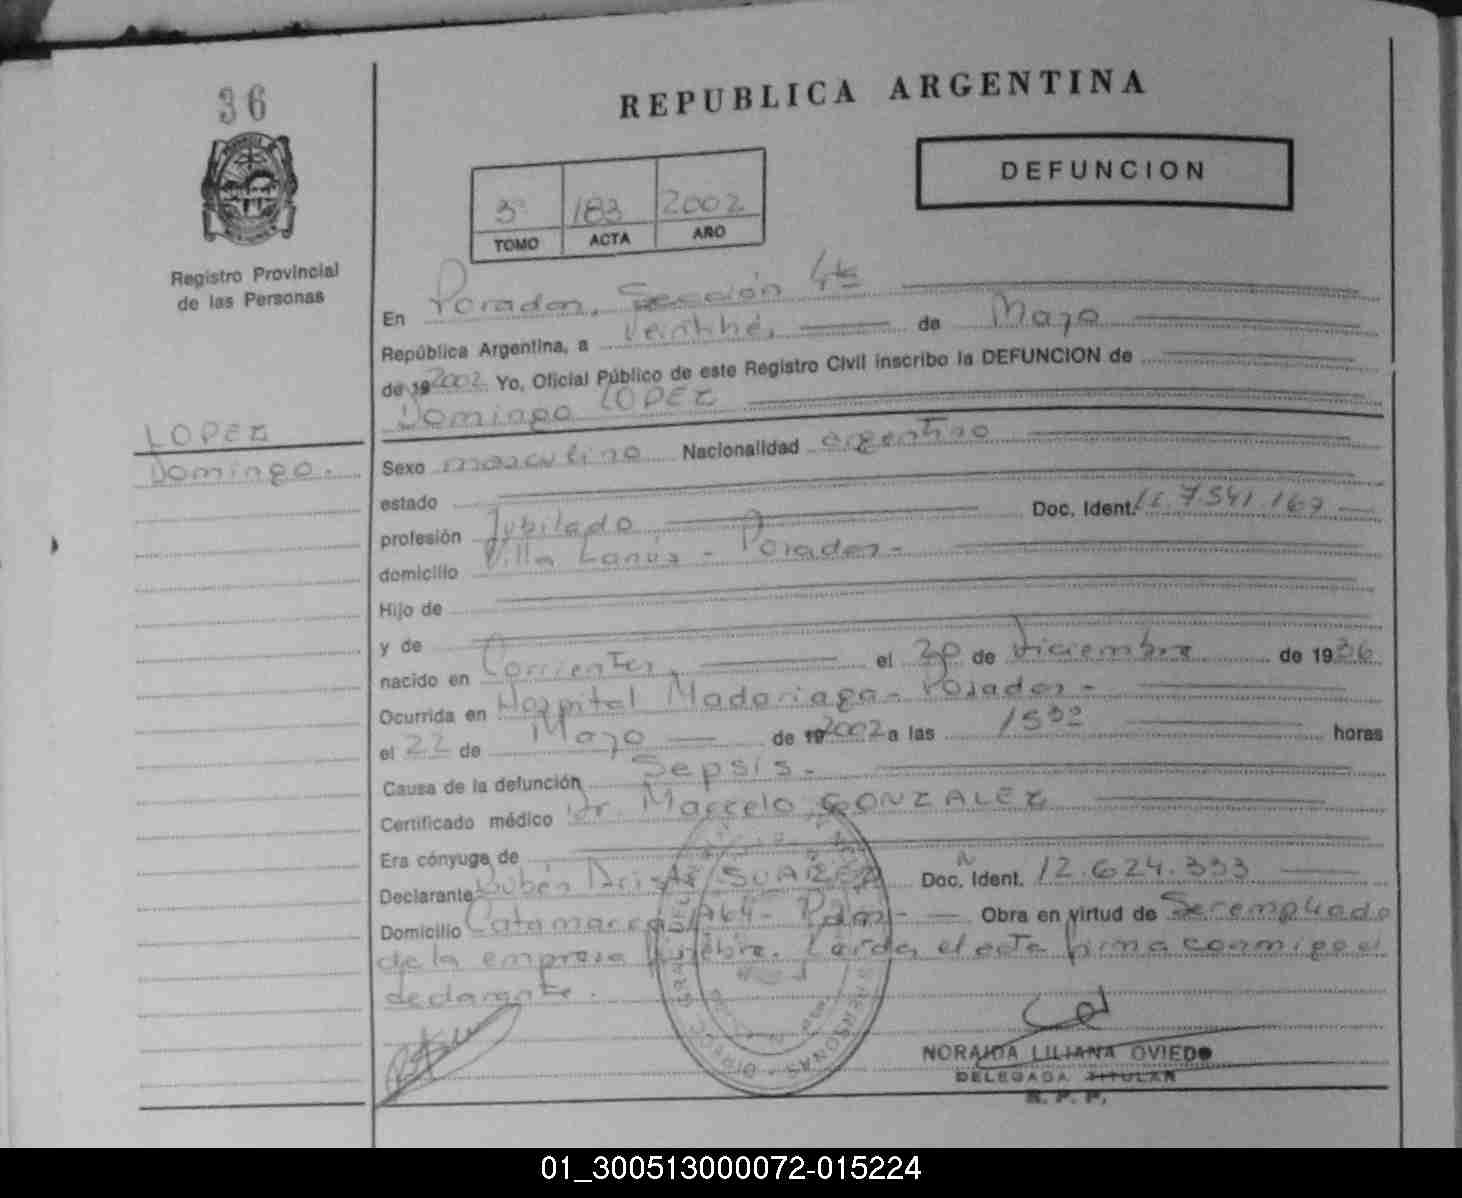 36
REPUBLICA ARGENTINA
DEFUNCION
3º 183 2002
TOMO ACTA AÑO
Registro Provincial
de las Personas
En Posadas, Sección 4ta
República Argentina, a veintitrés de Mayo
de 19 2002 Yo, Oficial Público de este Registro Civil inscribo la DEFUNCION de
Domingo LOPEZ
LOPEZ
Domingo.
Sexo masculino Nacionalidad argentino
estado
profesión Jubilado Doc. Ident. 7.541.167
domicilio Villa Lanús - Posadas -
Hijo de
y de
nacido en Corrientes, el 20 de Diciembre de 1936
Ocurrida en Hospital Madariaga - Posadas -
el 22 de Mayo de 19 2002 a las 1532 horas
Causa de la defunción Sepsis -
Certificado médico Dr. Marcelo GONZALEZ
Era cónyuge de
Declarante Rubén SUAREZ Doc. Ident. 12.624.333
Domicilio Catamarca Pdas - Obra en virtud de Ser empleado
de la empresa fúnebre. Leída el acta firma conmigo el
declarante.
NORAIDA LILIANA OVIEDO
DELEGADA TITULAR
R. P. P.
01_300513000072-015224